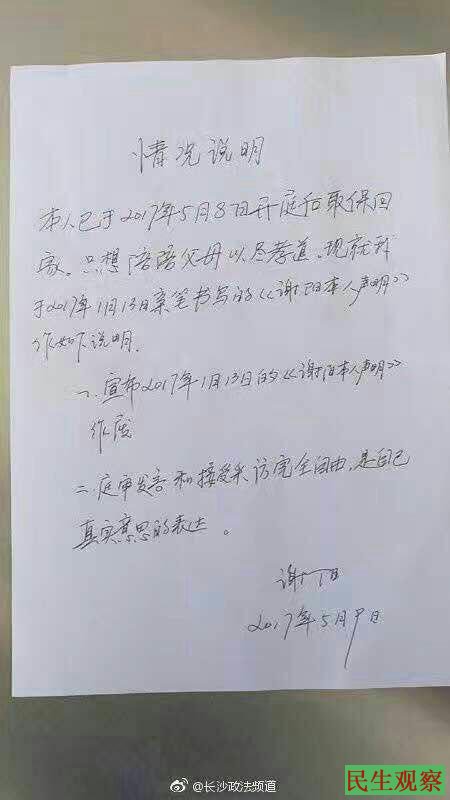 情况说明
本人已于2017年5月8日开庭后取保回
家。只想陪陪父母以尽孝道。现就我
于2017年1月13日亲笔书写的《谢阳本人声明》
作如下说明.
一.宣布2017年1月13日的《谢阳本人声明》
作废
二.庭审发言和接受采访完全自由,是自己
真实意思的表达。
谢阳
2017年5月9日
@长沙政法频道
民生观察